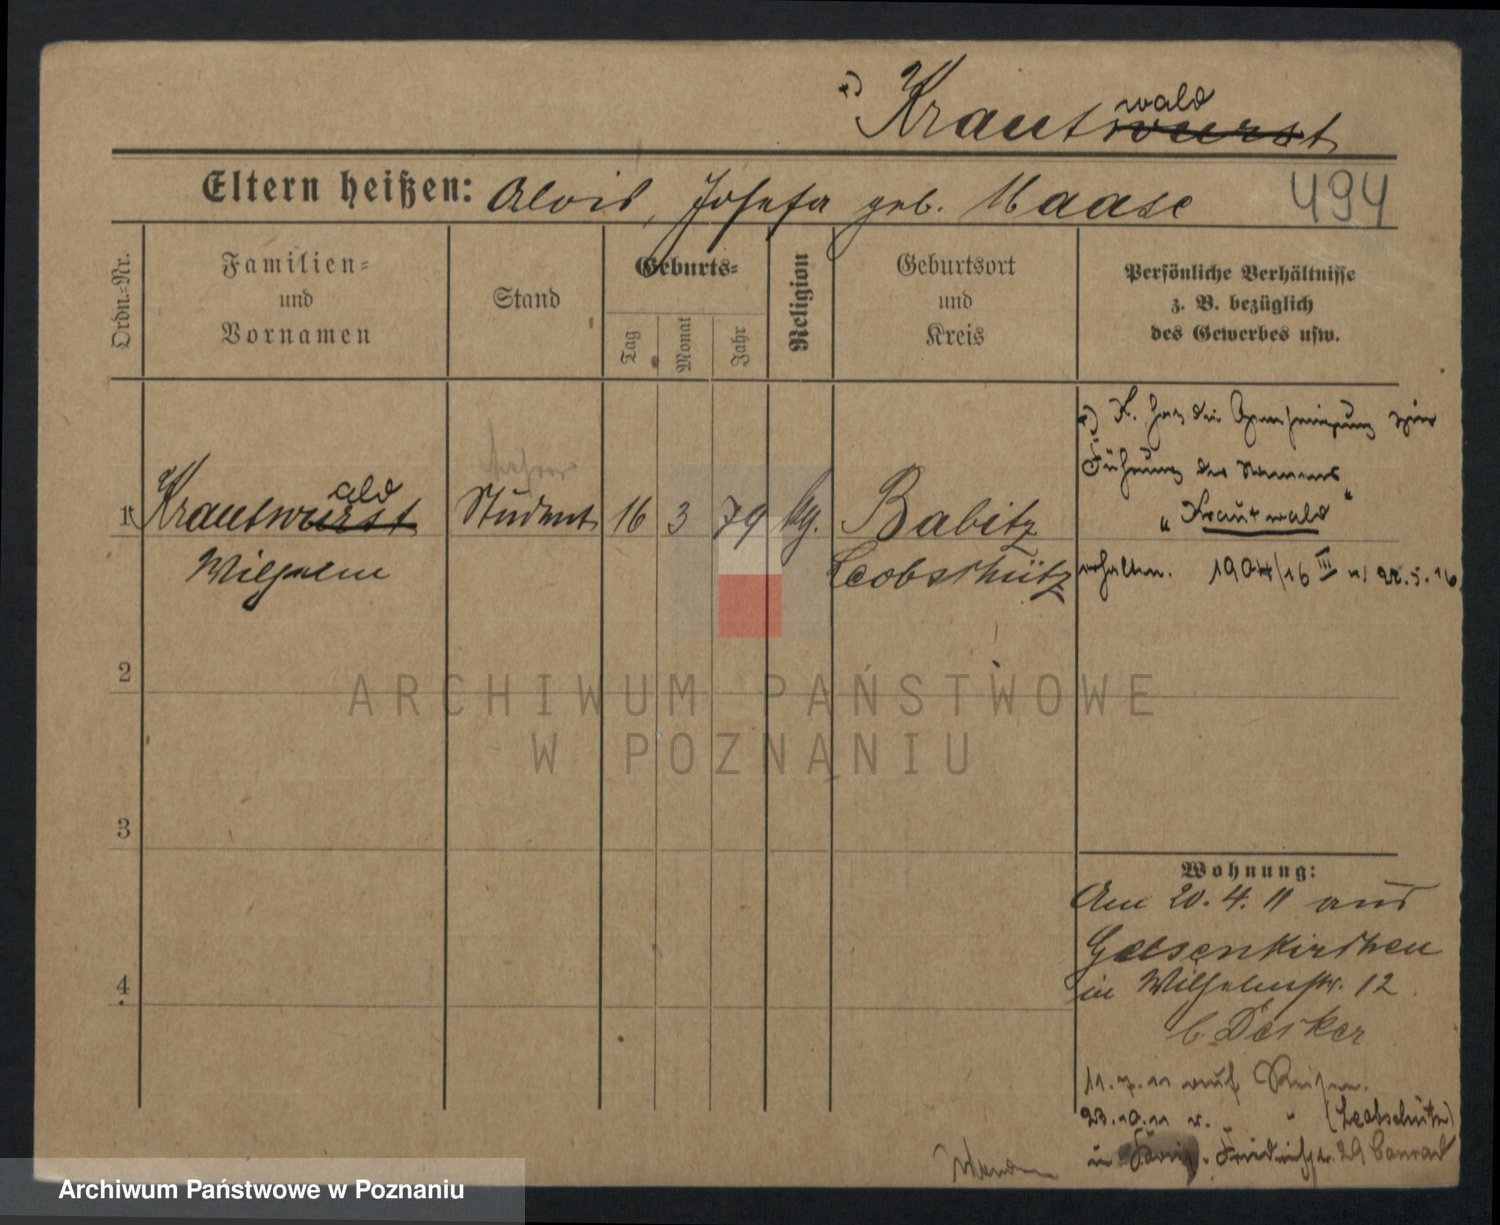 a) Krautwurst wald
Eltern heißen: Alois, Josefa geb. Haase 494
Ordn.-Nr.
Familien-
und
Vornamen
Stand
Geburts-
Tag
Monat
Jahr
Religion
Geburtsort
und
Kreis
Persönliche Verhältnisse
z. B. bezüglich
des Gewerbes usw.
a) K. hat die Genehmigung zur
Führung des Namens
"Krautwald"
erhalten. 1904/16 III v. 22.5.16
1 Krautwurst ald Student 16 3 79 kg. Babitz
Wilhelm Leobschütz
2
3
4
Wohnung:
Am 20.4.11 aus
Gelsenkirchen
in Wilhelmstr. 12
b. Decker
11.7.11 auf Reisen.
23.10.11 v. " (Leobschütz)
in König. Friedrichstr. 29 Conrad
ARCHIWUM PAŃSTWOWE
W POZNANIU
Archiwum Państwowe w Poznaniu